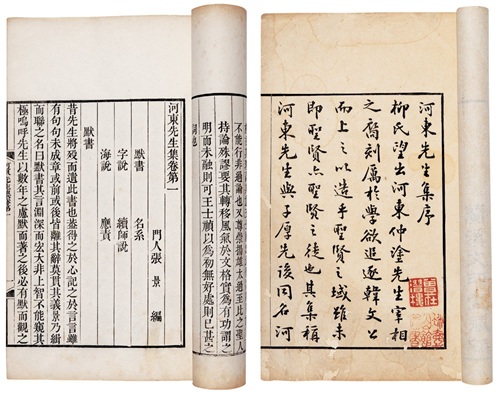 河東先生集序
柳氏望出河東仲塗先生宰相
之裔刻厲於學欲追逐韓文公
而上之以造乎聖賢之域雖未
即聖賢亦聖賢之徒也其集稱
河東先生與子厚先後同名河
不能行非過也又尊崇揚雄太過至比之聖人
持論殊謬要其轉移風氣於文格實為有功謂之
明而未融則可王士禎以為初無好處則已甚之
詞也
河東先生集卷第一
門人張 景 編
默書 名系
字說 續師說
海說 應責
默書
昔先生將歿而遺此書也蓋得之於心記之於言言雖
有句句未成章或前或後皆離其辭莫貫其義景乃緝
而聯之名曰默書其言淵深而宏大非上智不能窺其
極嗚呼先生以數年之慮默而著之後必有默而觀之